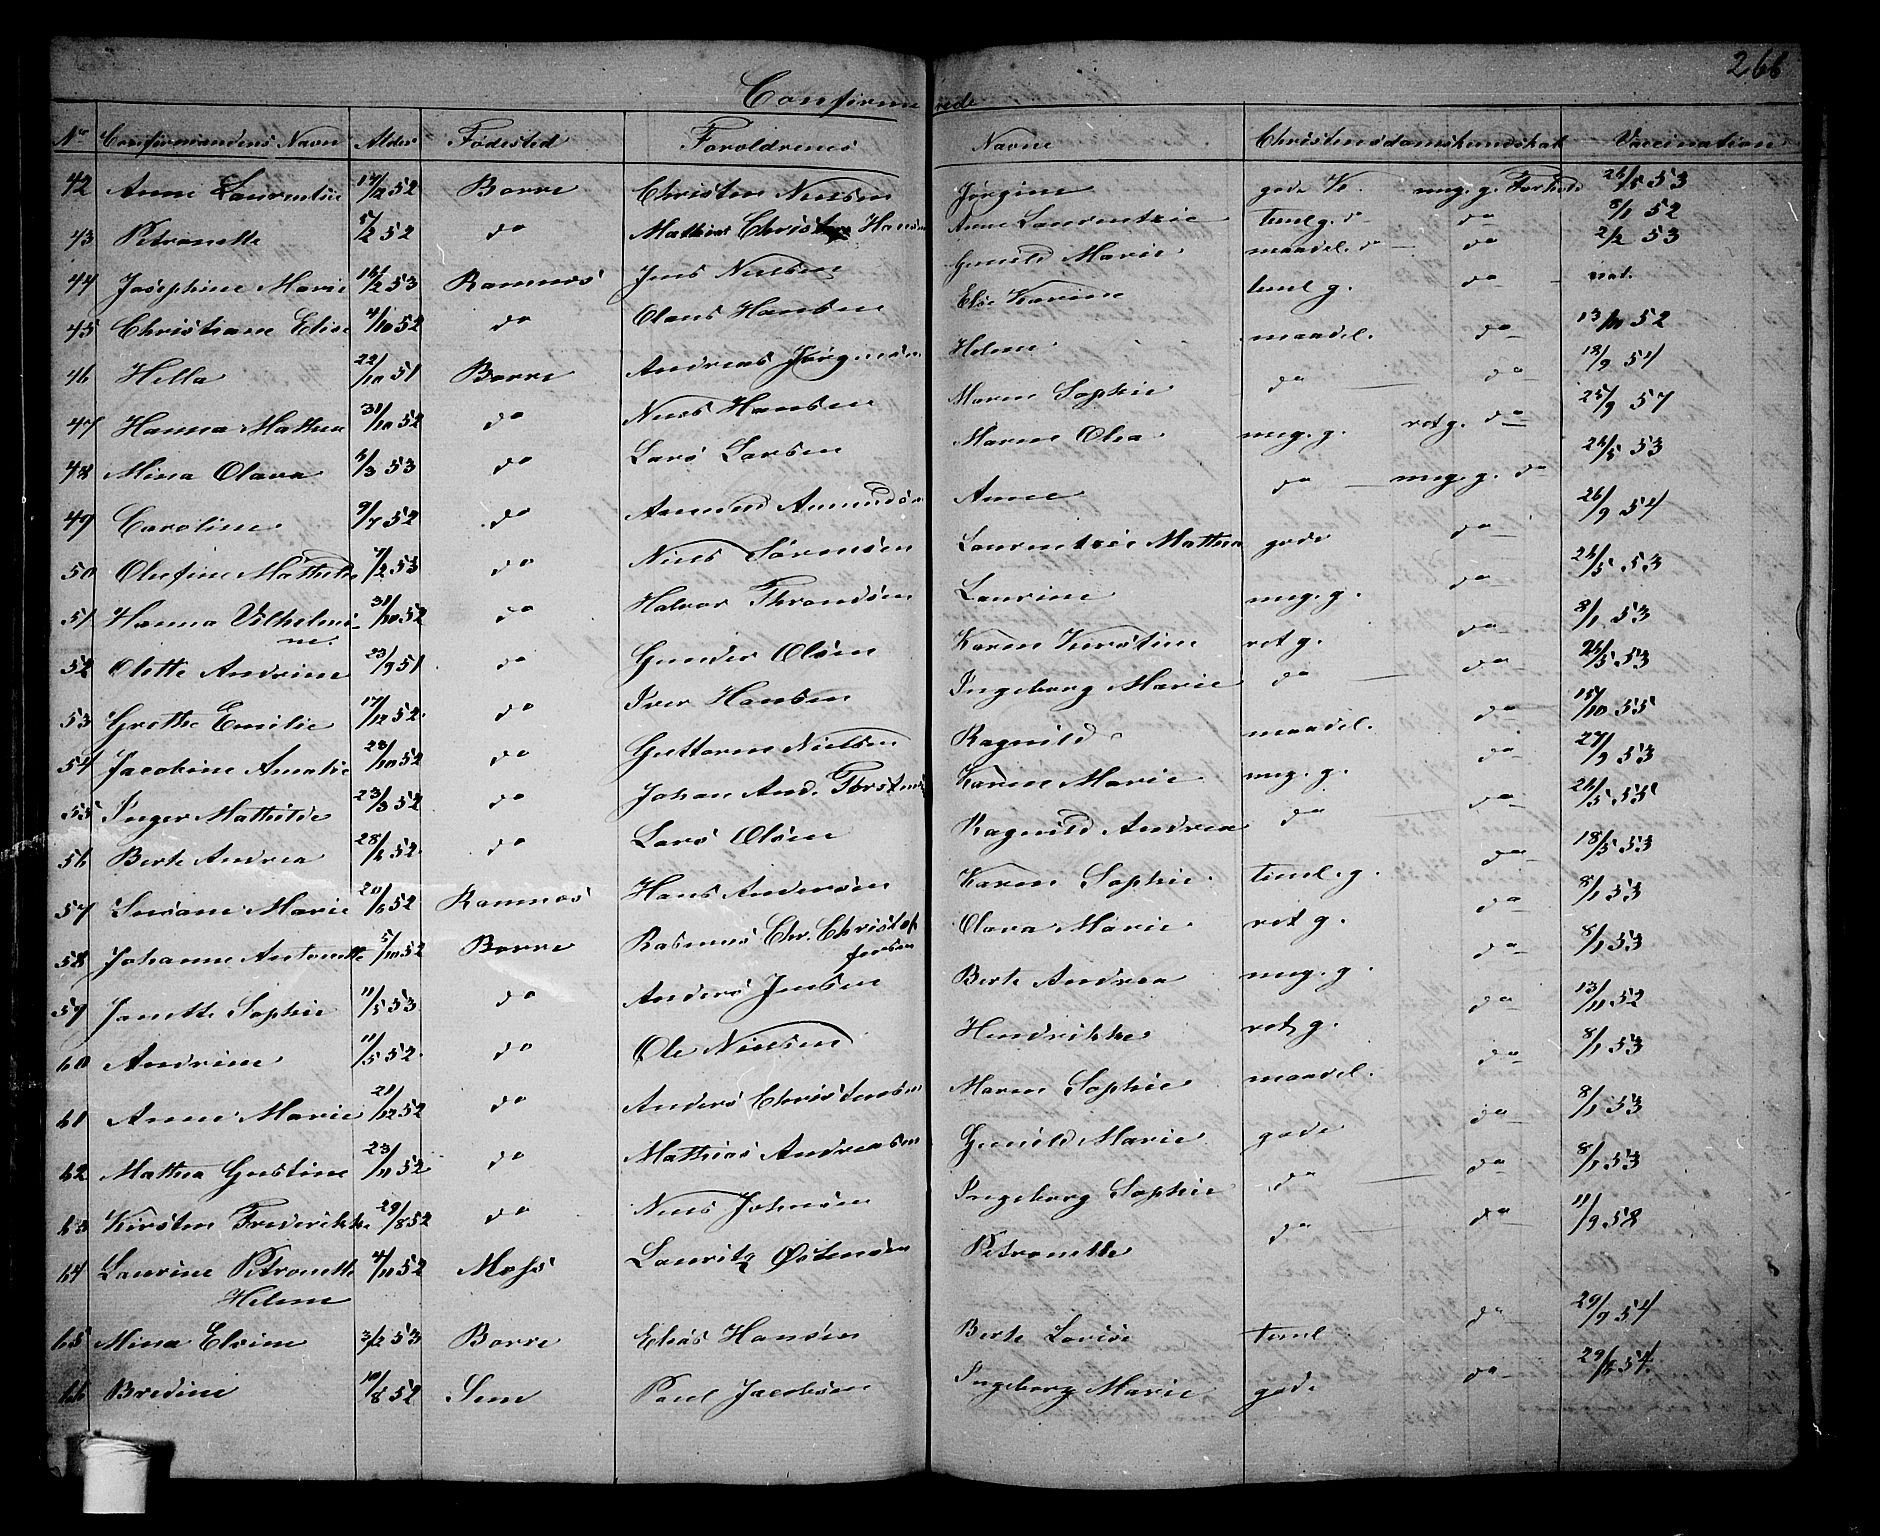 266
Confirmerede
No Confirmandens Navn Alder Fødested Forældrenes Navne Christendomskundskab Vaccination
42 Anne Laurentzie 52 Borre Christen Nielsen Jørgine gode K. meg. g. Forhold 26/5 53
43 Petronelle 5/2 52 do Mathias Christian Hansen Anne Laurentzie teml g. do do 8/1 52
44 Josephine Marie 16/2 53 Ramnæs Jens Nielsen Gunild Marie maadel. do do 2/2 53
45 Christiane Elise 4/10 52 do Olaus Hansen Else Karine teml g. do nat.
46 Hella 22/10 51 Borre Andreas Jørgensen Helene maadel. do 13/11 52
47 Hanna Mathea 31/10 52 do Niels Hansen Maren Sophie do do 18/9 54
48 Mina Olava 3/3 53 do Lars Larsen Maren Olea meg. g. ret g. do 25/9 57
49 Caroline 9/7 52 do Amund Amundsen Anne do meg. g. do 26/5 53
50 Olufine Mathilde 7/2 53 do Niels Sørensen Laurentzie Mathea gode do 26/9 54
51 Hanna Vilhelmi-
ne. 31/10 52 do Halvor Throndsen Laurine meg. g. do 26/5 53
52 Olette Andrine 23/9 51 do Gunder Olsen Karen Kirstine ret g. do 8/1 53
53 Grethe Emilie 17/12 52. do Iver Hansen Ingeborg Marie do do 26/5 53
54 Jacobine Amalie 23/10 52 do Guttorm Nielsen Ragnild maadel. do 15/10 55
55 Inger Mathilde 23/3 52 do Johan And. Thorstensen Karen Marie meg. g. do 27/9 53
56 Berte Andrea 28/1 52. do Lars Olsen Ragnild Andrea do do 26/5 55
57 Susane Marie 20/6 52 Ramnæs Hans Andersen Karen Sophie teml. g. do 18/5 53
58 Johanne Antonette 5/10 52 Borre Rasmus Chr. Christof
fersen Olava Marie ret g. do 8/1 53
59 Janette Sophie 11/5 53 do Anders Jensen Berte Andrea meg. g. do 8/1 53
60 Andrine 11/5 52. do Ole Nielsen Hendrikke ret g. do 13/11 52
61 Anne Marie 21/12 52 do Anders Christensen Maren Sophie maadel. do 8/1 53
62 Mathea Gustine 23/11 52 do Mathias Andreasen Gunild Marie gode do 8/1 53
63 Kirsten Frederikke 29/8 52 do Niels Johnsen Ingeborg Sophie do do 8/1 53
64 Laurine Petronelle
Helene 4/11 52 Moss Lauritz Østensen Petronelle do do 11/9 58
65 Mina Elvine 3/2 53 Borre Elias Hansen Berte Lovise teml do 29/9 54
66 Bredine 10/8 52 Sem Paul Jacobsen Ingeborg Marie gode do 29/8 54.